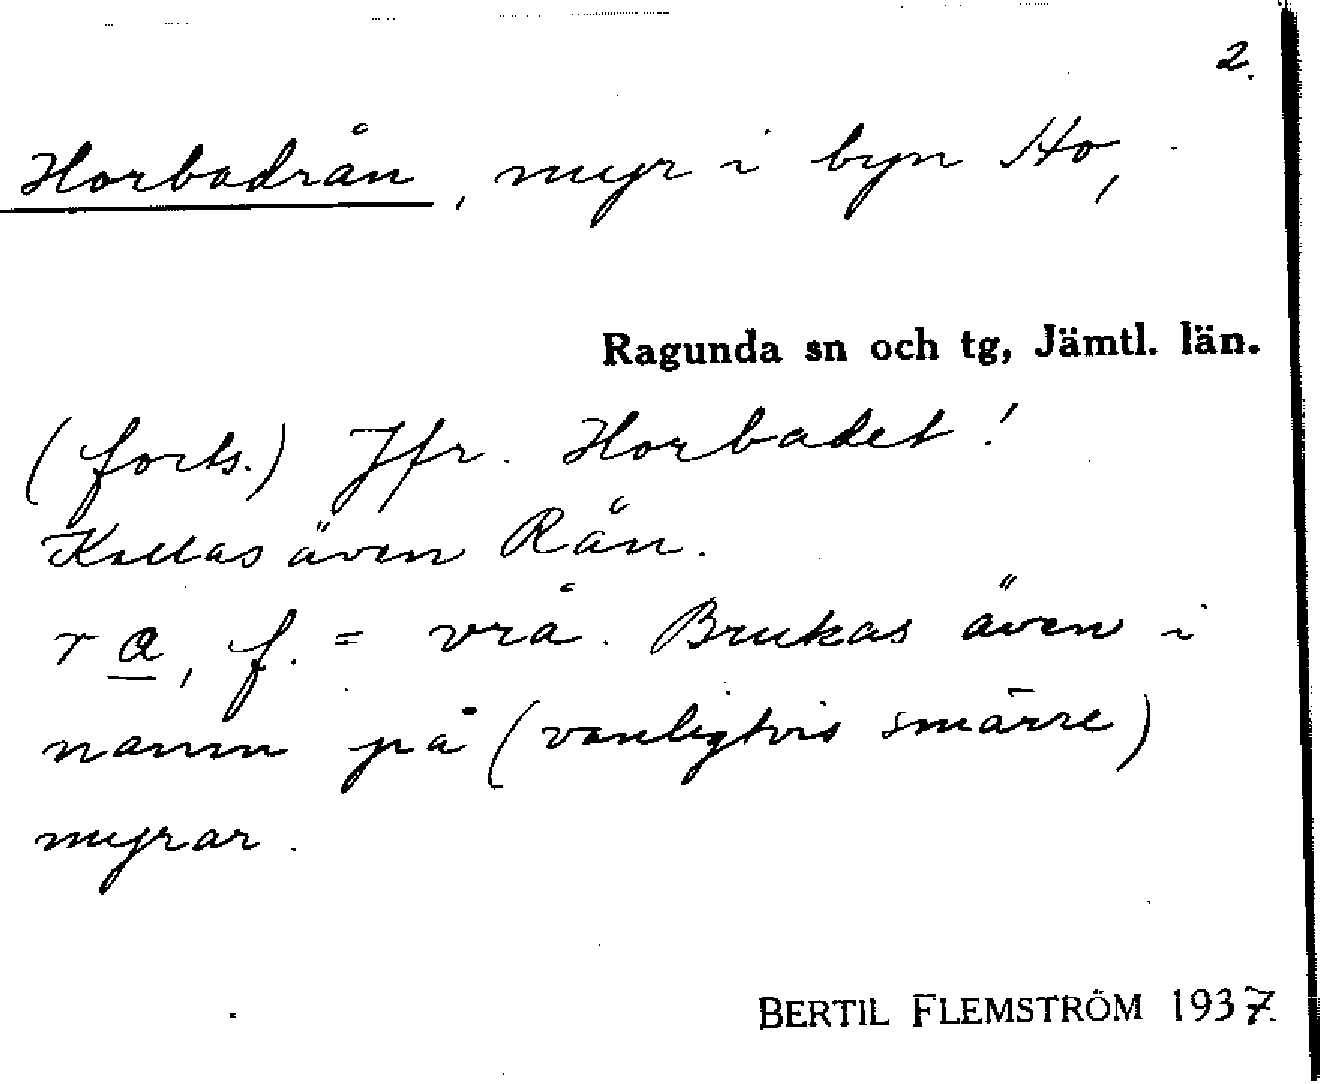 2.
Horbadrån, myr i byn Ho,
Ragunda sn och tg, Jämtl. län.
(forts.) Jfr. Horbadet!
Kallas även Rån.
ra, f. = vrå. Brukas även i
namn på (vanligtvis smärre)
myrar.
BERTIL FLEMSTRÖM 1937.